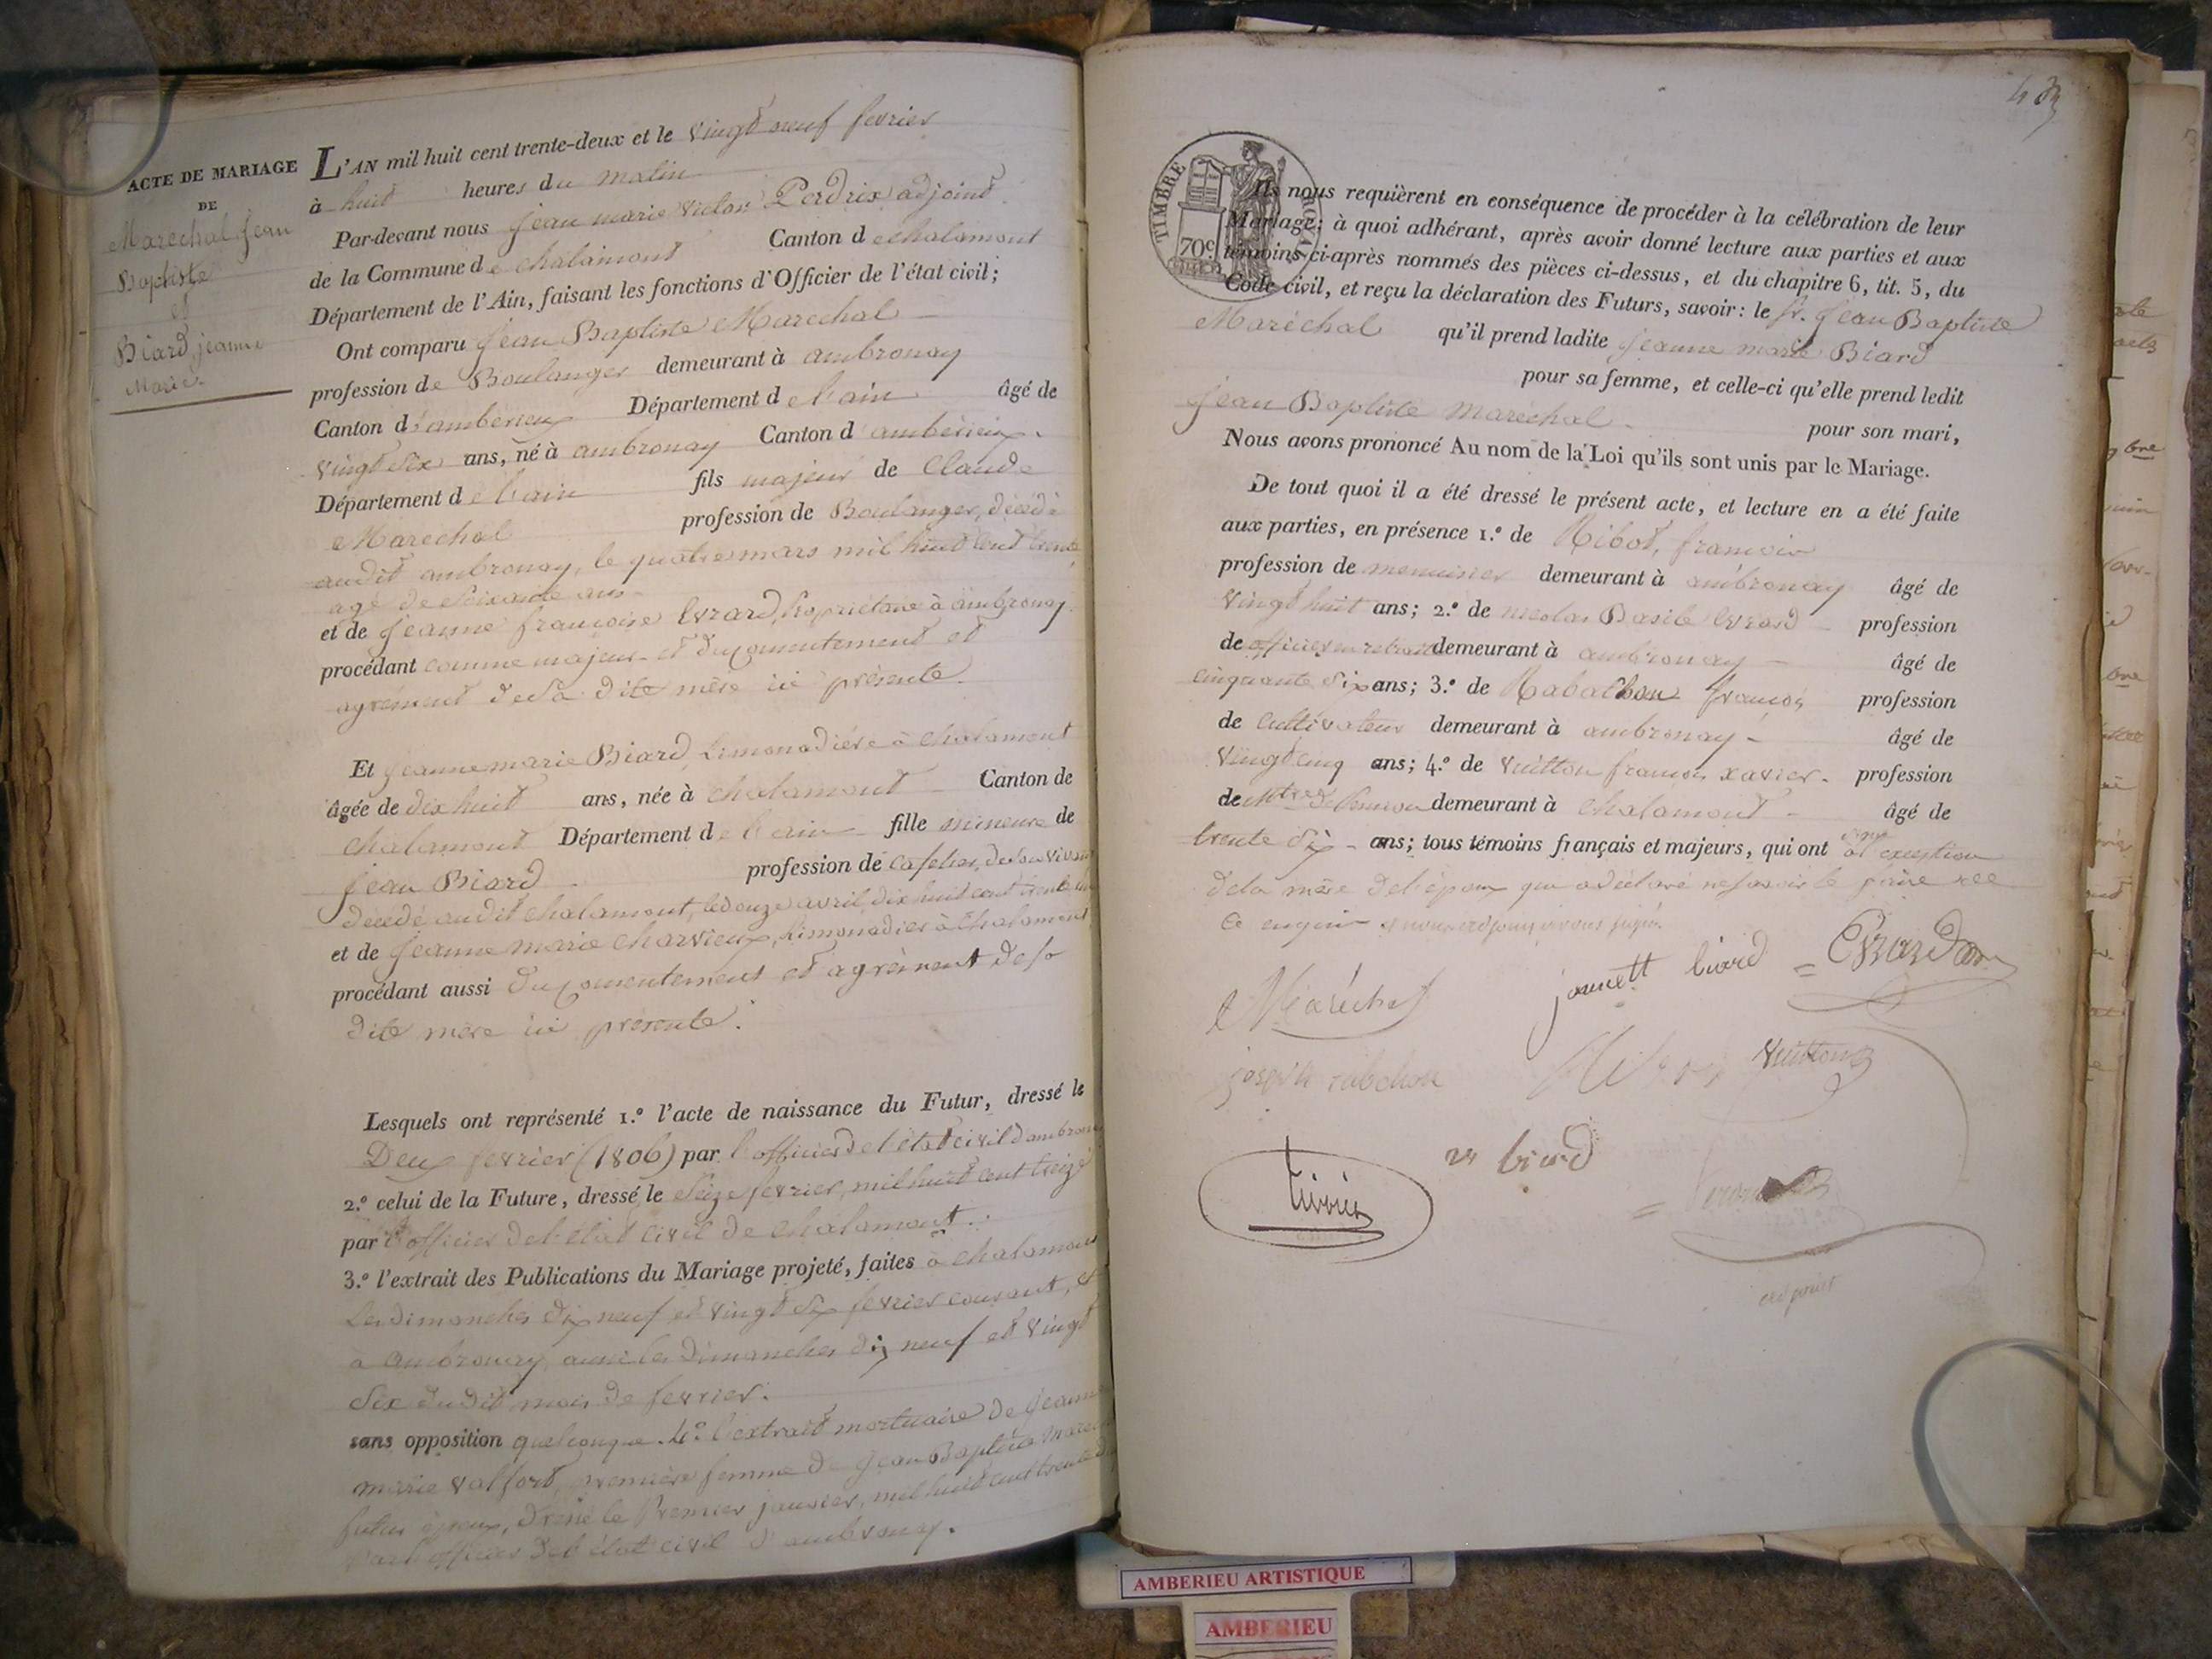 ACTE DE MARIAGE
DE
Marechal Jean
Baptiste
et
Biard, jeanne
Marie
L'AN mil huit cent trente-deux et le vingt neuf fevrier
à huit heures du matin
Par-devant nous Jean marie victor Perdrix adjoint
de la Commune de chalamont Canton de chalamont
Département de l'Ain, faisant les fonctions d'Officier de l'état civil;
Ont comparu Jean Baptiste Marechal
profession de Boulanger demeurant à ambronay
Canton d'amberieux Département de l'ain âgé de
vingt six ans, né à ambronay Canton d'amberieux
Département de l'ain fils majeur de Claude
Marechal profession de Boulanger, décédé
audit ambronay, le quatre mars mil huit cent trente
agé de soixante ans
et de Jeanne françoise Evrard, propriétaire à ambronay
procédant comme majeur et du consentement et
agrément de sa dite mère ici présente.
Et jeanne marie Biard, Limonadière à chalamont
âgée de dix huit ans, née à chalamont Canton de
chalamont Département de l'ain fille mineure de
Jean Biard profession de cafetier, de son vivant
décédé audit chalamont, le douze avril dix huit cent trente un
et de Jeanne marie charvieux, Limonadier à chalamont
procédant aussi du consentement et agrément de sa
dite mère ici présente.
Lesquels ont représenté 1.º l'acte de naissance du Futur, dressé le
Deux fevrier (1806) par l'officier de l'état civil d'ambronay
2.º celui de la Future, dressé le seize fevrier, mil huit cent treize
par l'officier de l'état civil de chalamont.
3.º l'extrait des Publications du Mariage projeté, faites à chalamont
Les dimanches dix neuf et vingt six fevrier courant, et
à ambronay, aussi les dimanches dix neuf et vingt
six dudit mois de fevrier.
sans opposition quelconque. 4.º l'extrait mortuaire de Jeanne
marie valfort, première femme de Jean Baptiste Marechal
futur époux, dressé le Premier janvier, mil huit cent trente
par l'officier de l'état civil d'ambronay.
43
TIMBRE ROYAL
70c
Ils nous requièrent en conséquence de procéder à la célébration de leur
Mariage; à quoi adhérant, après avoir donné lecture aux parties et aux
témoins ci-après nommés des pièces ci-dessus, et du chapitre 6, tit. 5, du
Code civil, et reçu la déclaration des Futurs, savoir: le Sr. Jean Baptiste
Maréchal qu'il prend ladite Jeanne marie Biard
pour sa femme, et celle-ci qu'elle prend ledit
Jean Baptiste Maréchal pour son mari,
Nous avons prononcé Au nom de la Loi qu'ils sont unis par le Mariage.
De tout quoi il a été dressé le présent acte, et lecture en a été faite
aux parties, en présence 1.º de Ribot, francois
profession de menuisier demeurant à ambronay âgé de
vingt huit ans; 2.º de nicolas Basile Evrard profession
de officier en retraite demeurant à ambronay âgé de
cinquante six ans; 3.º de Rabachon francois profession
de cultivateur demeurant à ambronay âgé de
vingt cinq ans; 4.º de vuitton francois xavier profession
de Mtre de Pension demeurant à chalamont âgé de
trente six ans; tous témoins français et majeurs, qui ont signé à l'exception
de la mère de l'époux qui a déclaré ne savoir le faire de
ce enquis et nous adjoint avons signé.
Maréchal janett biard Evrard
joseph rabchon Ribot vuitton
tivrier ve biard
adjoint
AMBERIEU ARTISTIQUE
AMBERIEU